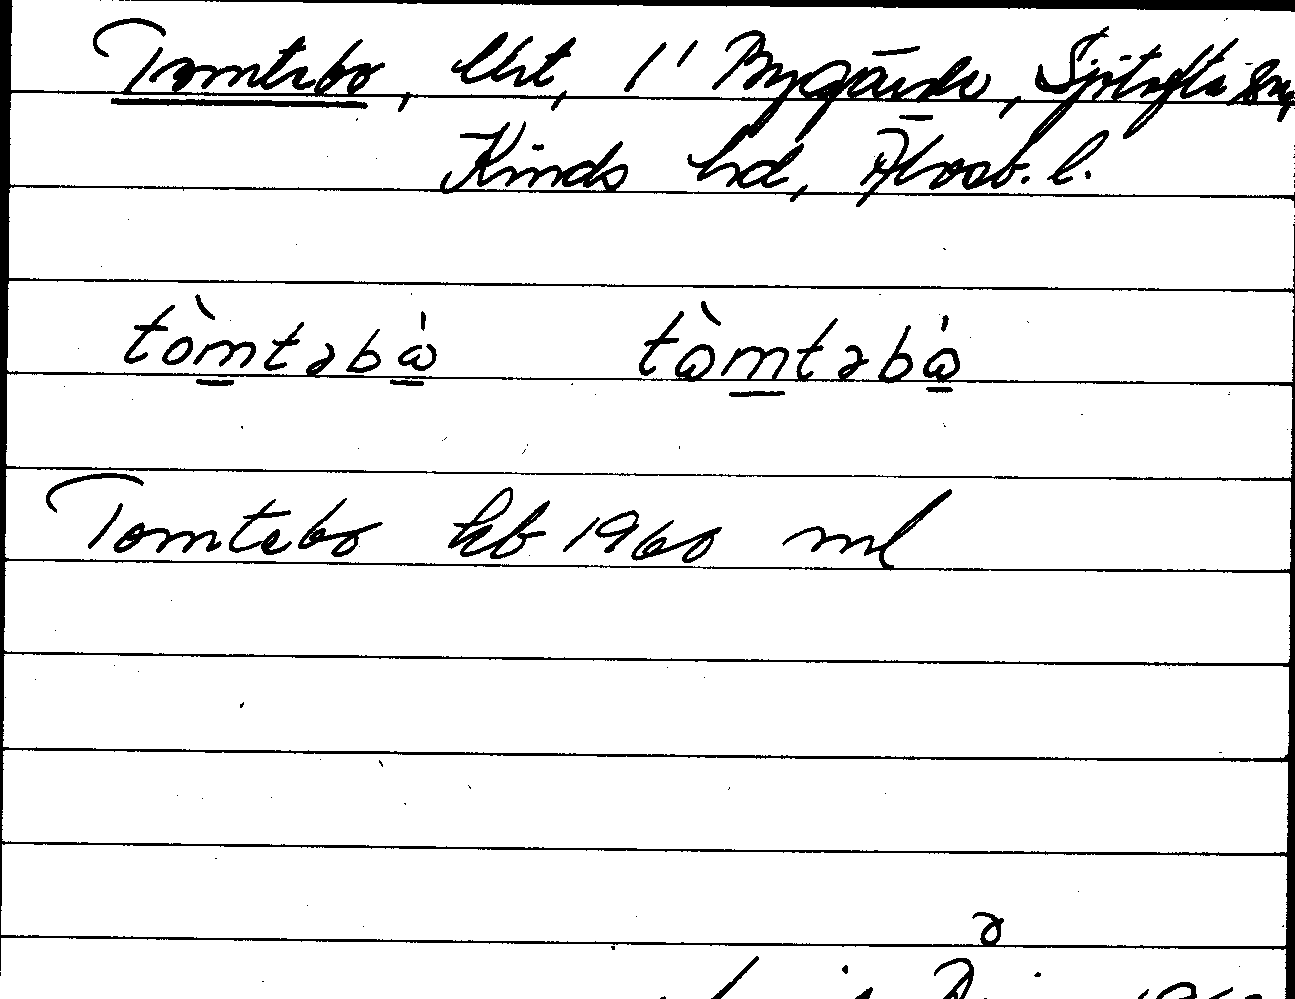 Tomtebo, lht, 1' Bygärde, Sjötofta sn,
Kinds hd, Älvsb. l.
tòmtəbɷ̀ tɷ̀mtəbɷ̀
Tomtebo kb 1960 ml
ə